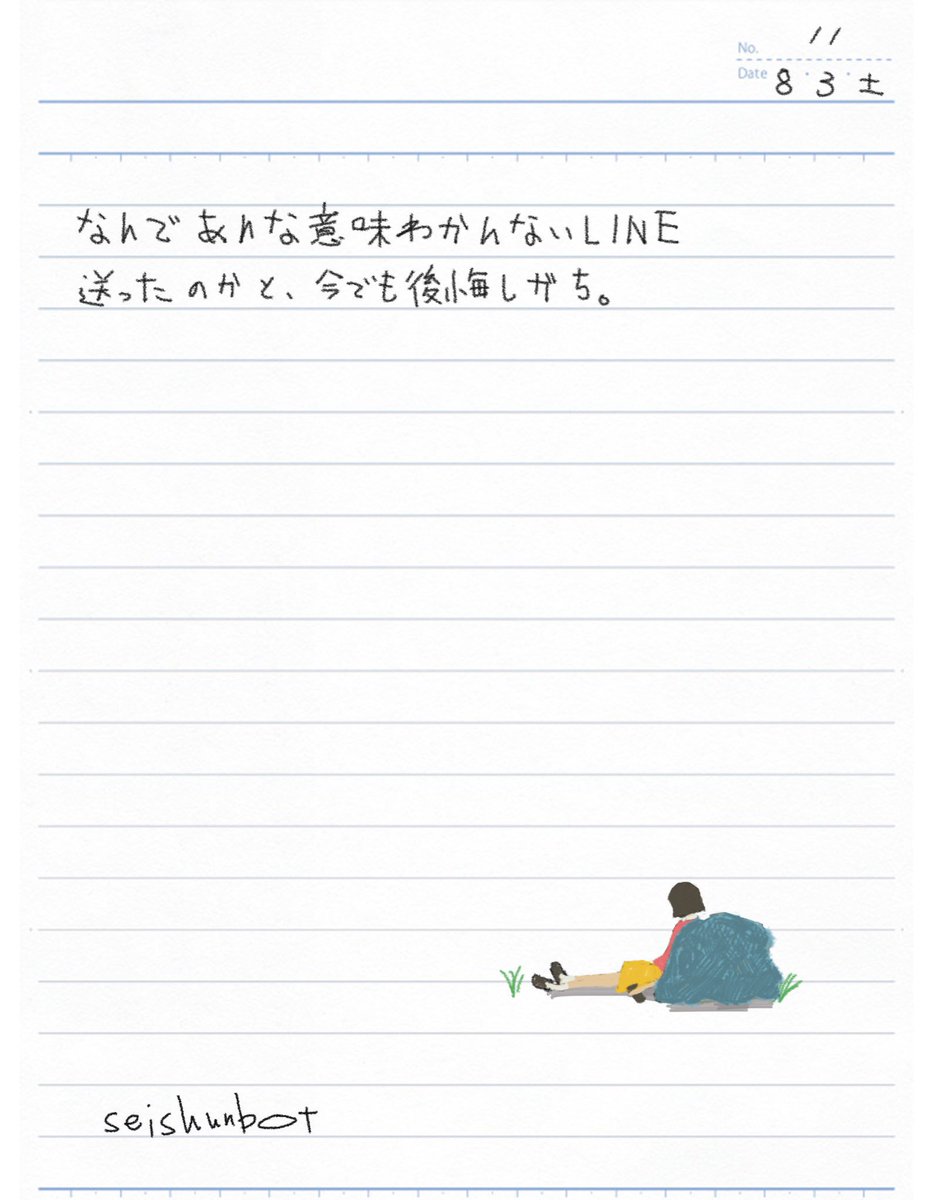 No. 11
Date 8・3・土
なんであんな意味わかんないLINE
送ったのかと、今でも後悔しがち。
seishunbot